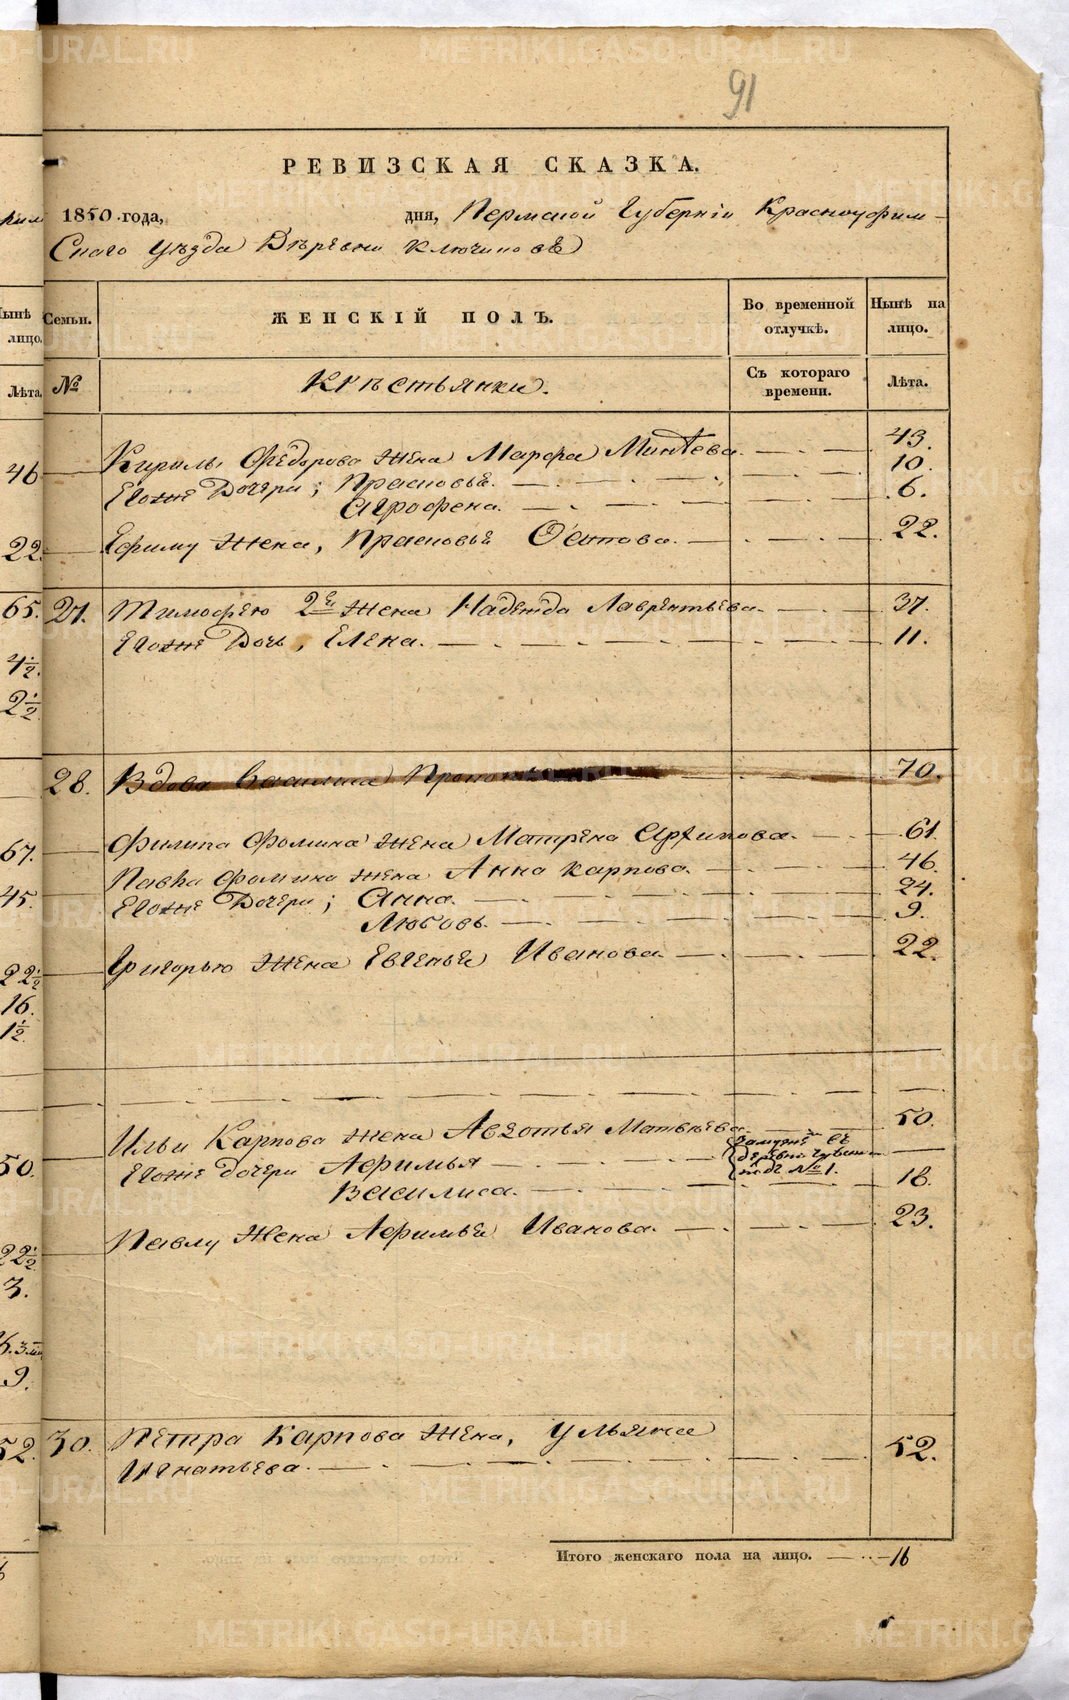 91
РЕВИЗСКАЯ СКАЗКА.
1850 года, дня, Пермской Губернiи Красноуфим-
скаго уѣзда Деревни Ключиковъ
Семьи. ЖЕНСКIЙ ПОЛЪ. Во временной отлучкѣ. Нынѣ на лицо.
№ Крестьянки. Съ котораго времени. Лѣта.
46 Кирилы Федорова жена Марфа Минѣева 43.
Егоже Дочери; Прасковья. 10.
Аграфена. 6.
22 Ефиму жена, Прасковья Осипова. 22.
65. 27. Тимофею 2я жена Надежда Лаврентьева. 37.
Егоже Дочь, Елена. 11.
4½
2½
28. Вдова Прокопьева 70.
67. Филипа Фомина жена Матрена Архипова. 61
Павла Фомина жена Анна Карпова. 46
45. Егоже Дочери; Анна. 24.
Любовь. 9.
22½ Григорью жена Евгенья Иванова. 22.
16.
1½
Ильи Карпова жена Авдотья Матвеева. 50.
50. Егоже дочери Афимья замужѣ въ деревни подъ № 1.
Василиса. 18.
22½ Павлу жена Афимья Иванова. 23.
3.
9.
52. 30. Петра Карпова жена, Ульяна
Игнатьева. 52.
Итого женскаго пола на лицо. 16
METRIKI.GASO-URAL.RU